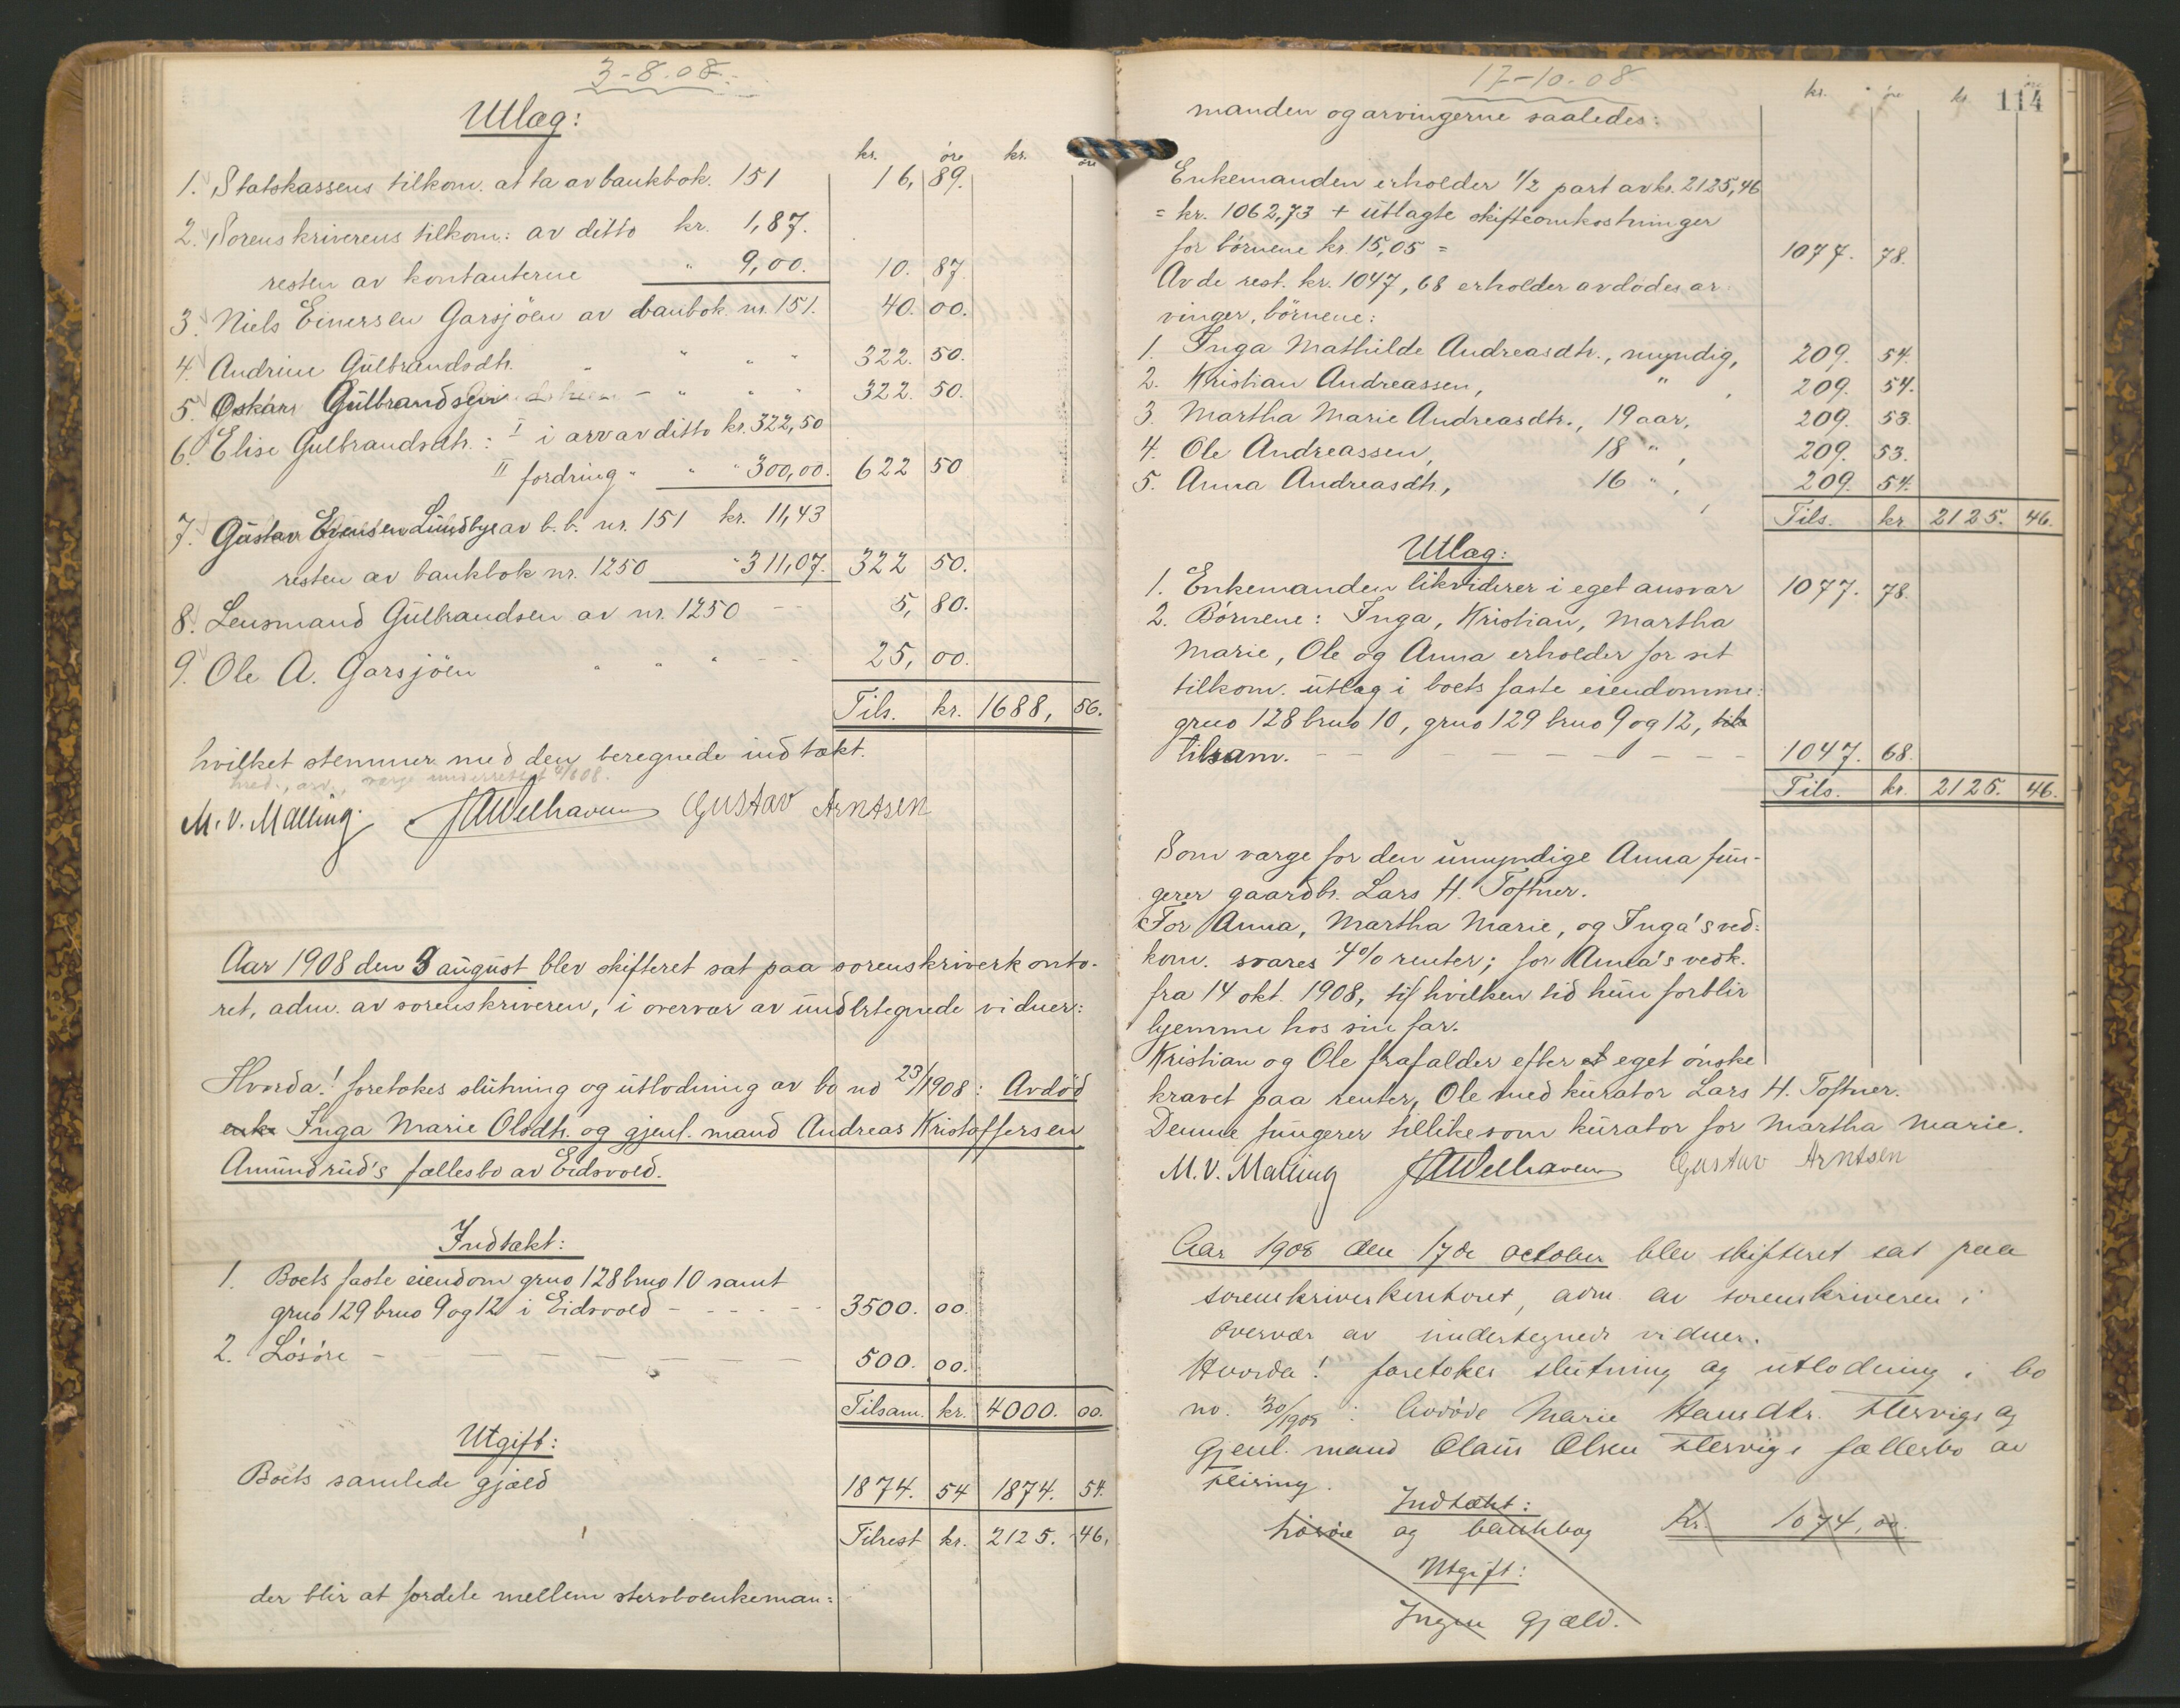 3-8-08.
Utlæg:
kr. øre kr. øre
1. Statskassens tilkom. at ta av bankbok. 151 16, 89.
2. Sorenskriverens tilkom: av ditto kr. 1,87.
resten av kontanterne " 9,00. 10. 87.
3. Niels Einersen Garsjöen av bankbok nr. 151. 40. 00.
4. Andrine Gulbrandsdtr. " " " " 322. 50.
5. Oskar Gulbrandsen - " " " 322. 50.
6. Elise Gulbrandsdtr.: I i arv av ditto kr. 322,50
II fordring " " " 300,00. 622 50
7. Gustav Evensen Lundbye av b.b. nr. 151 kr. 11,43
resten av bankbok nr. 1250 " 311,07. 322 50.
8. Lensmand Gulbrandsen av nr. 1250 - - 5, 80.
9. Ole A. Garsjöen " " " - - 25, 00.
Tils. kr. 1688, 56.
hvilket stemmer med den beregnede indtækt.
værge underrettet
M. V. Malling. JAWelhaven Gustav Arntsen
Aar 1908 den 3 august blev skifteret sat paa sorenskriverkonto-
ret, adm. av sorenskriveren, i overvær av undertegnede vidner:
Hvorda! foretokes slutning og utlodning av bo no 23/1908: Avdöd
enke Inga Marie Olsdtr. og gjenl. mand Andreas Kristoffersen
Amundrud's fællesbo av Eidsvold.
Indtækt:
1. Boets faste eiendom gruo 128 bruo 10 samt
gruo 129 bruo 9 og 12 i Eidsvold - - - - - - 3500. 00.
2. Lösöre - - - - - - - 500. 00.
Tilsam. kr. 4000. 00.
Utgift:
Boets samlede gjæld 1874. 54 1874. 54.
Tilrest kr. 2125. 46.
der blir at fordele mellem stervboenkeman=
17-10-08
kr. øre kr. øre
114
manden og arvingerne saaledes:
Enkemanden erholder 1/2 part av kr. 2125,46
= kr. 1062,73 + utlagte skifteomkostninger
for börnene kr. 15,05 = 1077. 78.
Av de rest. kr. 1047,68 erholder avdödes ar-
vinger, börnene:
1. Inga Mathilde Andreasdtr., myndig, 209. 54.
2. Kristian Andreassen, " , 209. 54.
3. Martha Marie Andreasdtr., 19 aar, 209. 53.
4. Ole Andreassen, 18 " , 209. 53.
5. Anna Andreasdtr, 16 " , 209. 54.
Tils. kr 2125. 46.
Utlæg:
1. Enkemanden likviderer i eget ansvar 1077. 78.
2. Börnene: Inga, Kristian, Martha
Marie, Ole og Anna erholder for sit
tilkom. utlæg i boets faste eiendomme:
gruo 128 bruo 10, gruo 129 bruo 9 og 12, tils
tilsam. - - - - - - - - 1047. 68.
Tils. kr. 2125. 46.
Som værge for den umyndige Anna fun-
gerer gaardbr. Lars H. Toftner.
For Anna, Martha Marie, og Inga's ved-
kom. svares 4% renter; for Anna's vedk.
fra 14 okt. 1908, til hvilken tid hun forblir
hjemme hos sin far.
Kristian og Ole frafalder efter et eget önske
kravet paa renter, Ole med kurator Lars H. Toftner.
Denne fungerer tillike som kurator for Martha Marie.
M. V. Malling JAWelhaven Gustav Arntsen
Aar 1908 den 17de october blev skifteret sat paa
sorenskriverkontoret, adm. av sorenskriveren i
overvær av undertegnede vidner.
Hvorda! foretokes slutning og utlodning i bo
no. 30/1908: Avdöde Marie Hansdtr. Hervigs og
gjenl. mand Olaus Olsen Hervigs fællesbo av
Feiring.
Indtækt:
Lösöre og bankbog Kr. 1074,00.
Utgift:
Ingen gjæld.